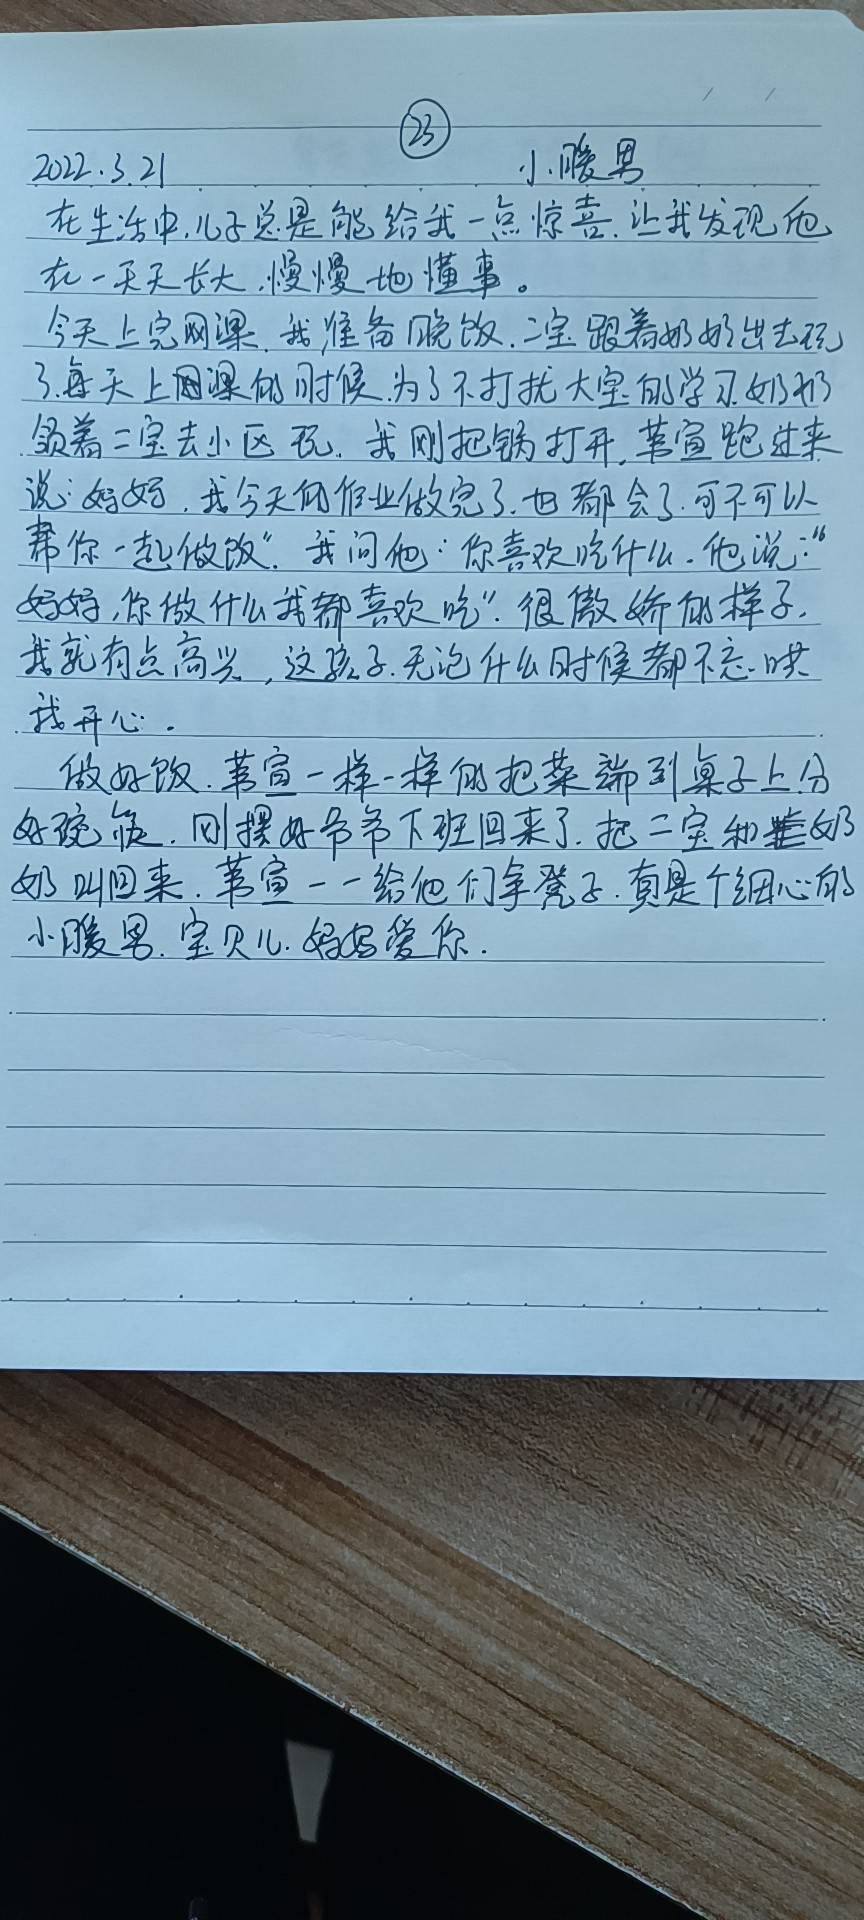 23
2022.3.21 小暖男
在生活中,儿子总是能给我一点惊喜.让我发现他
在一天天长大,慢慢地懂事。
今天上完网课.我准备晚饭.二宝跟着奶奶出去玩
了.每天上网课的时候.为了不打扰大宝的学习.奶奶
领着二宝去小区玩.我刚把锅打开,莘宣跑过来
说:妈妈.我今天的作业做完了.也都会了.可不可以
帮你一起做饭".我问他:你喜欢吃什么.他说:"
妈妈,你做什么我都喜欢吃".很傲娇的样子.
我就有点高兴,这孩子.无论什么时候都不忘哄
我开心.
做好饭.莘宣一样一样的把菜端到桌子上.分
好碗筷.刚摆好爷爷下班回来了.把二宝和奶
奶叫回来.莘宣一一给他们拿凳子.真是个细心的
小暖男.宝贝儿.妈妈爱你.